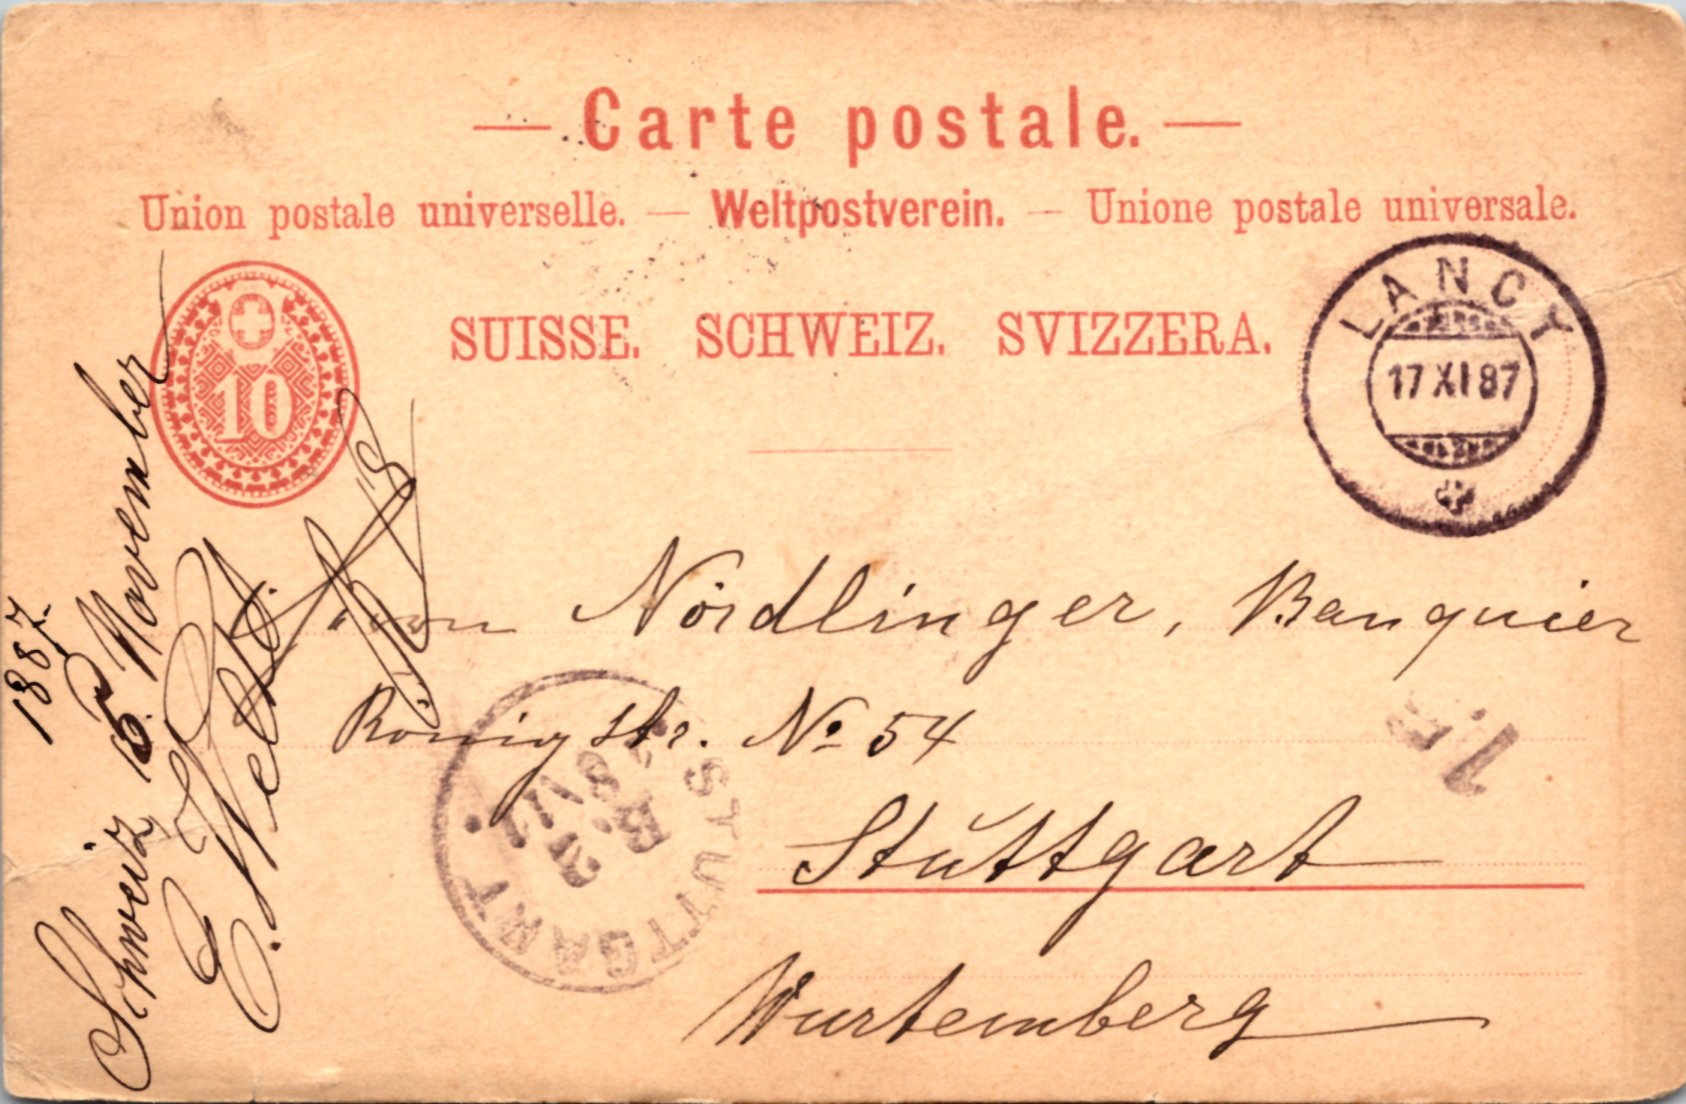 — Carte postale. —
Union postale universelle. — Weltpostverein. — Unione postale universale.
SUISSE. SCHWEIZ. SVIZZERA.
10
LANCY
17 XI 87
Nördlinger, Banquier
Königstr. No 54
Stuttgart
Wurtemberg
STUTTGART.
Schweiz 15. November
1887.